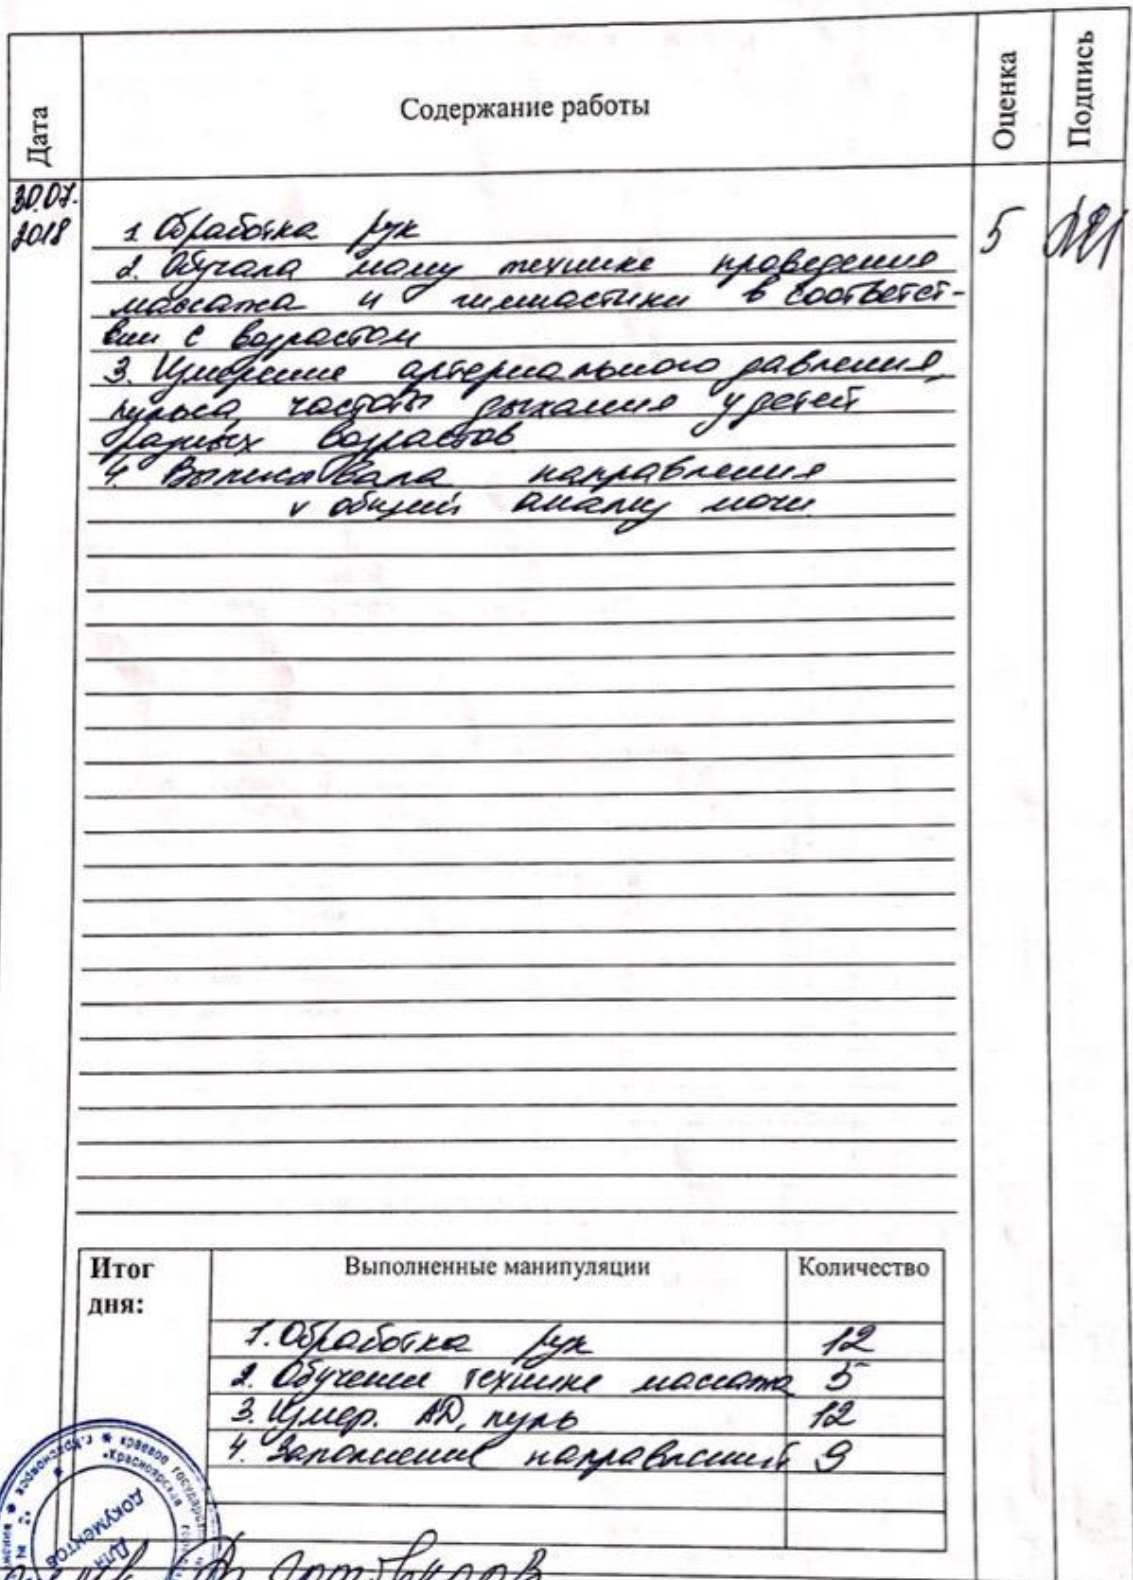 Дата
Содержание работы
Оценка
Подпись
30.07.
2018
1 Обработка рук
5
2. Обучала маму технике проведения
массажа и гимнастики в соответст-
вии с возрастом
3. Измерение артериального давления,
пульса, частоты дыхания у детей
разных возрастов
4. Выписывала направления
к общий анализ мочи.
Итог
дня:
Выполненные манипуляции
Количество
1. Обработка рук 12
2. Обучение технике массажа 5
3. Измер. АД, пульс 12
4. Заполнение направлений 9
Для
документов